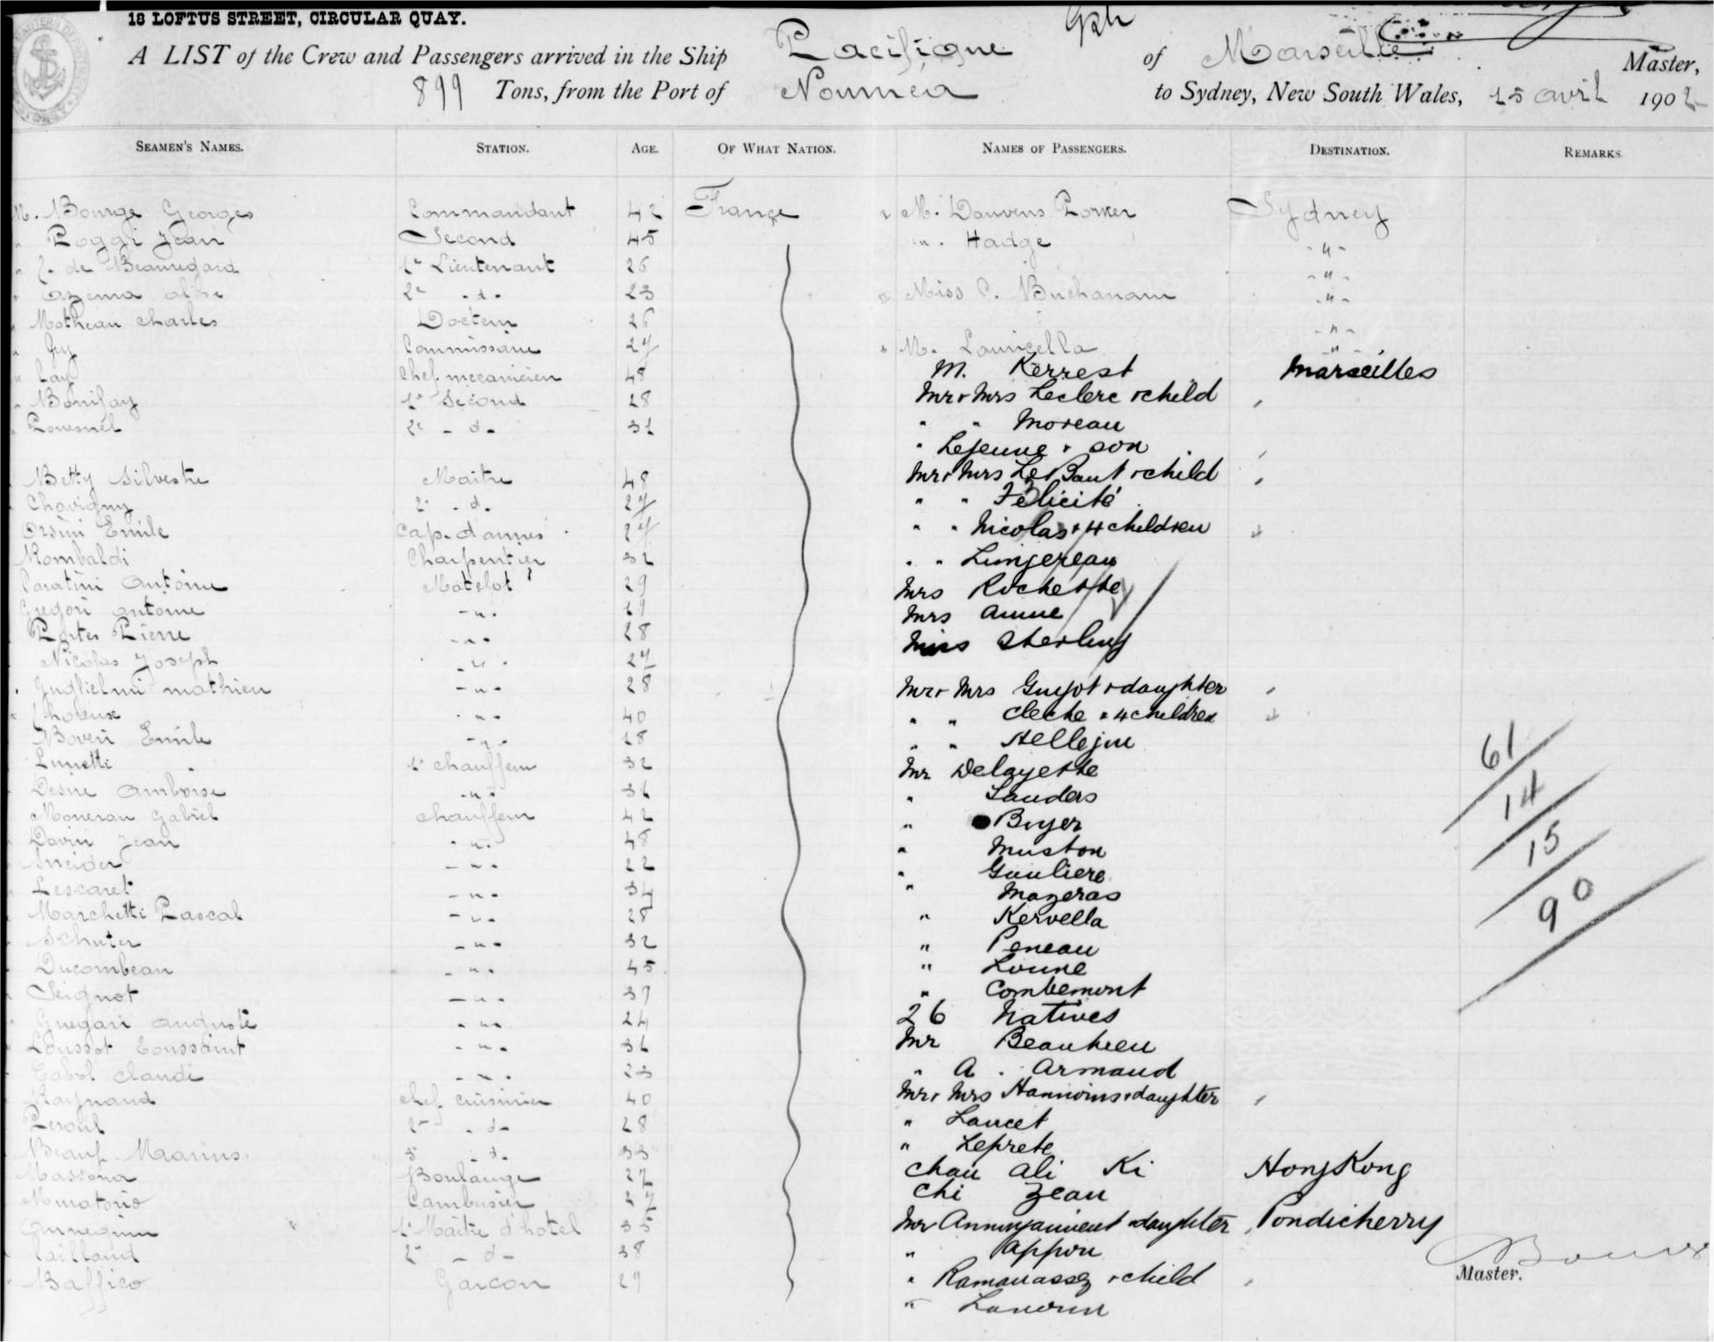 18 LOFTUS STREET, CIRCULAR QUAY.
A LIST of the Crew and Passengers arrived in the Ship Pacifique of Marseille Master,
899 Tons, from the Port of Noumea to Sydney, New South Wales, 15 avril 1902
SEAMEN'S NAMES. STATION. AGE. OF WHAT NATION. NAMES OF PASSENGERS. DESTINATION. REMARKS
M. Bourge Georges Commandant 42 France M. Dauvens Porker Sydney
" Poggi Jean Second 45 " Hadge "
" de Beauregard 1er Lieutenant 26 "
2e - d - 23 Miss C. Buchanam "
" Mathieu Charles Docteur 26 "
" Gey Commissaire 27 M. Lauricella "
" Lay Chef mecanicien 48 M. Kerrest Marseilles
" Bonifay 1er Second 28 Mr & Mrs Leclerc & child "
2e - d - 31 " " Moreau
" Lejeune & son
Betty Silvestre Maitre 48 Mr & Mrs Le Baut & child "
Chavigny 2e - d - 27 " " Félicité
Orsini Emile Cap. d'armes 27 " " Nicolas & 4 children "
Rombaldi Charpentier 32 " " Limjereau
Antoine Matelot 29 Mrs Rochette
Gregori Antoine - " - 29 Mrs Aimue
Portes Pierre - " - 28 Miss Sterling
Nicolas Joseph - " - 27
Guglielmi Mathieu - " - 28 Mr & Mrs Guyot & daughter "
- " - 40 " " Cleche & 4 children "
Boveri Emile - " - 28 " " Hellejou
Lunetti 1er Chauffeur 32 Mr Delayette
Desire Ambroise - " - 36 " Sanders
Moneran Gabriel Chauffeur 42 " Boyer
Davin Jean - " - 48 " Muston
Sneider - " - 22 " Gauliere
Lescaret - " - 34 " Mazeras
Marchetti Pascal - " - 28 " Kervella
Schuter - " - 32 " Peneau
Ducombeau - " - 45 " Loune
Seignot - " - 37 " Combemont
Guegan Auguste - " - 24 26 Natives
Loussot Toussaint - " - 36 Mr Beauhieu
Gabol Claude - " - 23 " A. Armaud
Raynaud Chef cuisinier 40 Mr & Mrs Hannoins & daughter "
2e - d - 28 " Laucet
Marius - d - 33 " Leprete
Massona Boulanger 27 Chau Ali Ki Hong Kong
Muratorio Cambusier 27 Chi Zeau
1er Maitre d'hotel 35 Mr & daughter Pondicherry
Taillaud 2e - d - 38 " Appou
Baffico Garcon 29 " Ramanassez & child "
61
14
15
90
Master.